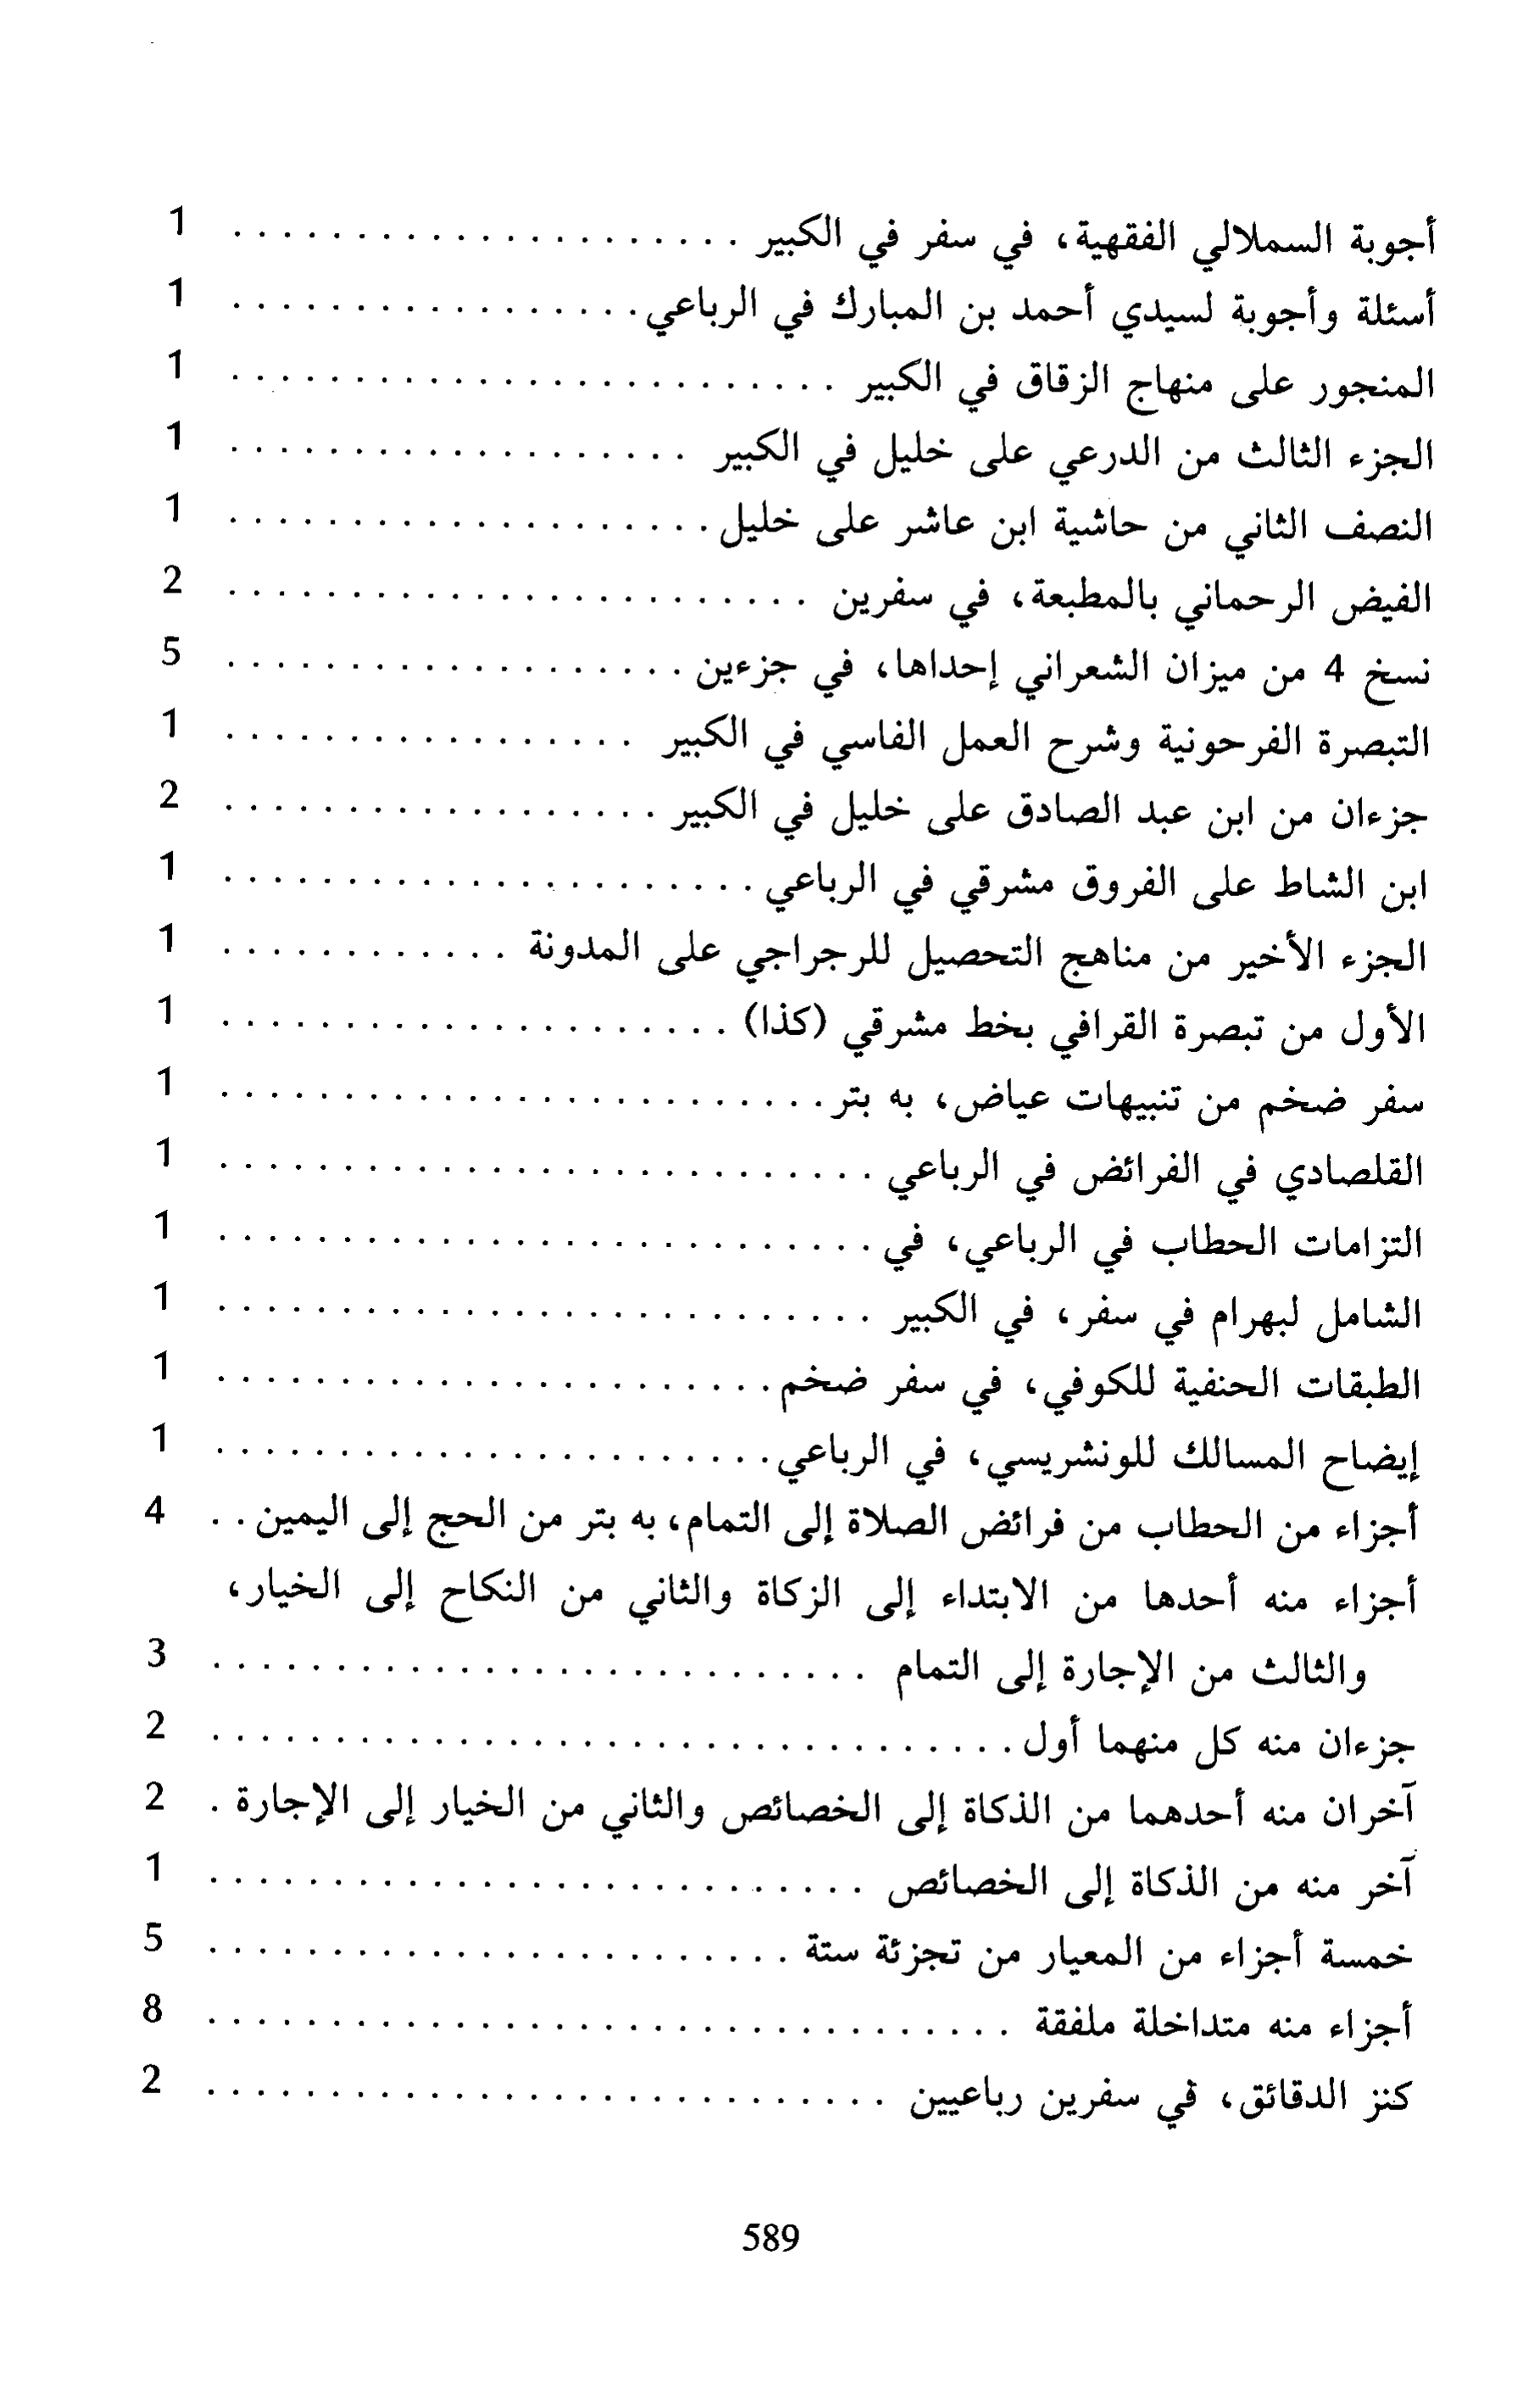 أجوبة السملالي الفقهية، في سفر في الكبير . . . . . . . . . . . . . . . . . . . . . 1
أسئلة وأجوبة لسيدي أحمد بن المبارك في الرباعي . . . . . . . . . . . . . . . . . 1
المنجور على منهاج الزقاق في الكبير . . . . . . . . . . . . . . . . . . . . . . . . . 1
الجزء الثالث من الدرعي على خليل في الكبير . . . . . . . . . . . . . . . . . . . 1
النصف الثاني من حاشية ابن عاشر على خليل . . . . . . . . . . . . . . . . . . . . 1
الفيض الرحماني بالمطبعة، في سفرين . . . . . . . . . . . . . . . . . . . . . . . . 2
نسخ 4 من ميزان الشعراني إحداها، في جزءين . . . . . . . . . . . . . . . . . . . 5
التبصرة الفرحونية وشرح العمل الفاسي في الكبير . . . . . . . . . . . . . . . . . 1
جزءان من ابن عبد الصادق على خليل في الكبير . . . . . . . . . . . . . . . . . . 2
ابن الشاط على الفروق مشرقي في الرباعي . . . . . . . . . . . . . . . . . . . . . . 1
الجزء الأخير من مناهج التحصيل للرجراجي على المدونة . . . . . . . . . . . . 1
الأول من تبصرة القرافي بخط مشرقي (كذا) . . . . . . . . . . . . . . . . . . . . . 1
سفر ضخم من تنبيهات عياض، به بتر . . . . . . . . . . . . . . . . . . . . . . . . . 1
القلصادي في الفرائض في الرباعي . . . . . . . . . . . . . . . . . . . . . . . . . . . 1
التزامات الحطاب في الرباعي، في . . . . . . . . . . . . . . . . . . . . . . . . . . . 1
الشامل لبهرام في سفر، في الكبير . . . . . . . . . . . . . . . . . . . . . . . . . . . 1
الطبقات الحنفية للكوفي، في سفر ضخم . . . . . . . . . . . . . . . . . . . . . . . 1
إيضاح المسالك للونشريسي، في الرباعي . . . . . . . . . . . . . . . . . . . . . . . 1
أجزاء من الحطاب من فرائض الصلاة إلى التمام، به بتر من الحج إلى اليمين . . 4
أجزاء منه أحدها من الابتداء إلى الزكاة والثاني من النكاح إلى الخيار،
والثالث من الإجارة إلى التمام . . . . . . . . . . . . . . . . . . . . . . . . . . . 3
جزءان منه كل منهما أول . . . . . . . . . . . . . . . . . . . . . . . . . . . . . . . . . 2
آخران منه أحدهما من الذكاة إلى الخصائص والثاني من الخيار إلى الإجارة . 2
آخر منه من الذكاة إلى الخصائص . . . . . . . . . . . . . . . . . . . . . . . . . . . 1
خمسة أجزاء من المعيار من تجزئة ستة . . . . . . . . . . . . . . . . . . . . . . . . 5
أجزاء منه متداخلة ملفقة . . . . . . . . . . . . . . . . . . . . . . . . . . . . . . . . . 8
كنز الدقائق، في سفرين رباعيين . . . . . . . . . . . . . . . . . . . . . . . . . . . . 2
589